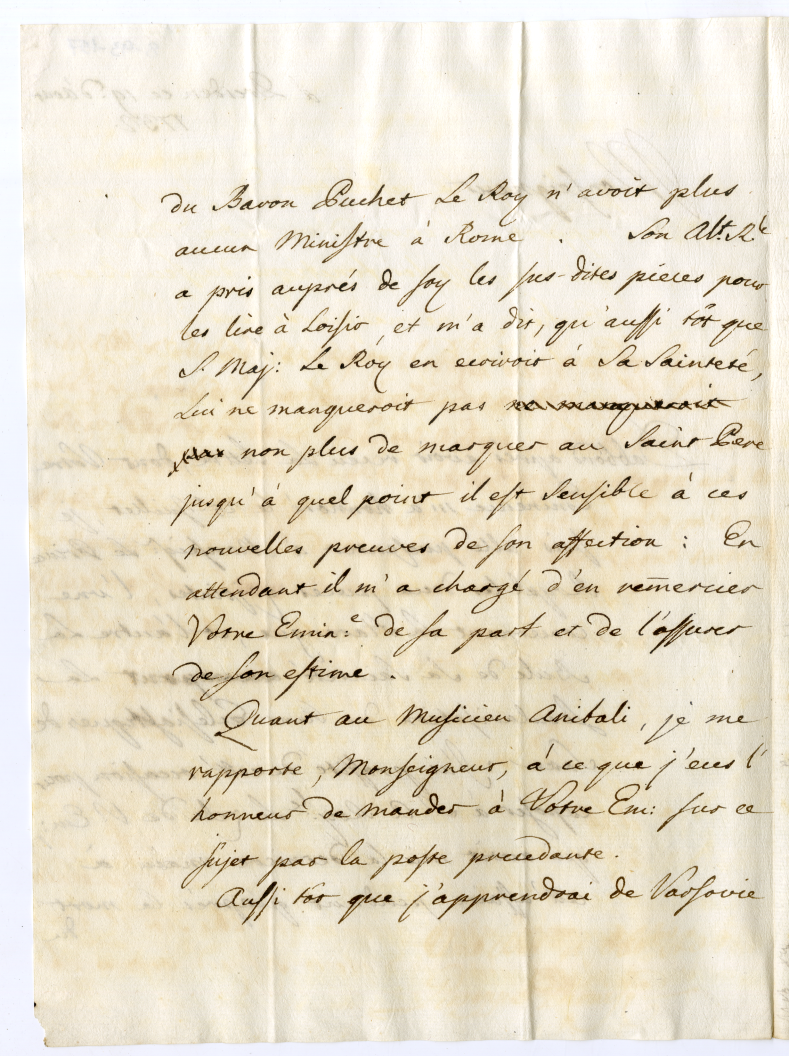 du Baron Puchet Le Roy n'avoit plus
aucun Ministre à Rome . Son Alt. R.le
a pris auprés de soy les sus-dites piéces pour
les lire à Loisir, et m'a dit, qu'aussi tôt que
S. Maj: Le Roy en ecriroit à Sa Sainteté,
Lui ne manqueroit pas ne manqueroit
pas non plus de marquer au Saint Pere
jusqu'à quel point il est Sensible à ces
nouvelles preuves de son affection : En
attendant il m'a chargé d'en remercier
Votre Emin:e de sa part et de l'assurer
de son estime .
Quant au Musicien Anibali, je me
rapporte, Monseigneur, à ce que j'eus l'
honneur de mander à Votre Em: sur ce
sujet par la poste precedante.
Aussi tôt que j'apprendrai de Varsovie